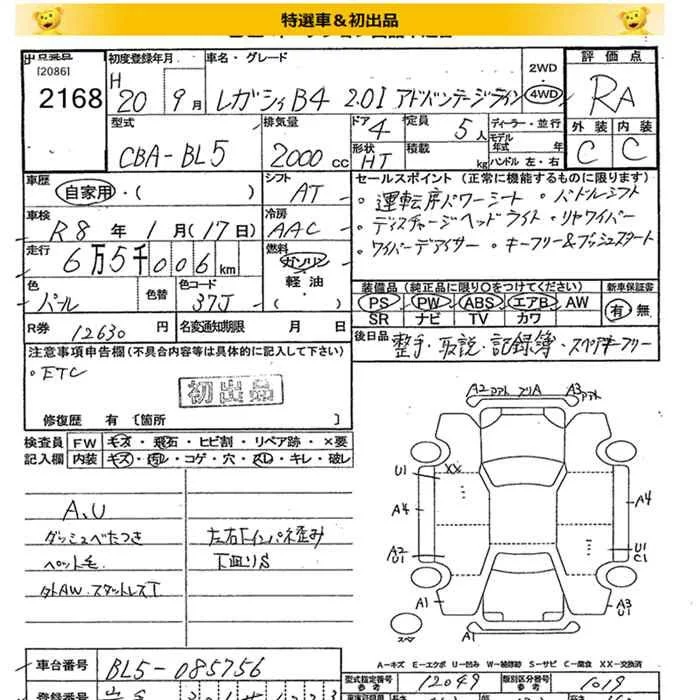 特選車&初出品
出品番号
[2086]
2168
初度登録年月
H
20 9月
車名・グレード
レガシィB4 2.0I アドバンテージライン
2WD
4WD
評価点
RA
外装 内装
C C
型式
CBA-BL5
排気量
2000 cc
ドア
4
形状
HT
定員
5人
積載
kg
ディーラー・並行
モデル年式 年
ハンドル 左・右
車歴
自家用・( )
シフト
AT
車検
R8年 1月(17日)
冷房
AAC
走行
6万5千006km
燃料
ガソリン
軽油
( )
色
パール
色替
色コード
37J
R券 12630円
名変通知期限 月 日
セールスポイント(正常に機能するものに限ります)
・運転席パワーシート ・パドルシフト
・ディスチャージヘッドライト・リヤワイパー
・ワイパーデアイサー ・キーフリー&プッシュスタート
装備品(純正品に限り〇をつけてください)
PS PW ABS エアB AW
SR ナビ TV カワ
新車保証書
有 無
後日品
整手・取説・記録簿・スペアキーフリー
注意事項申告欄(不具合内容等は具体的に記入して下さい)
・ETC
初出品
修復歴 有 〔箇所 〕
検査員記入欄
FW キズ・飛石・ヒビ割・リペア跡・×要
内装 キズ・汚レ・コゲ・穴・スレ・キレ・破レ
A、U
ダッシュべたつき
ペット毛
タトAW・スタットレスT
左右Fインパネ歪み
下廻りS
A2 アリA A3
U1 XX
A4 A4
A2
U1
U1
C1
A1
A3
U1
スペ
A1
A-キズ E-エクボ U-凹み W-補修跡 S-サビ C-腐食 XX-交換済
車台番号
BL5-085756
型式指定番号
参考
12049
類別区分番号
参考
1019
登録番号